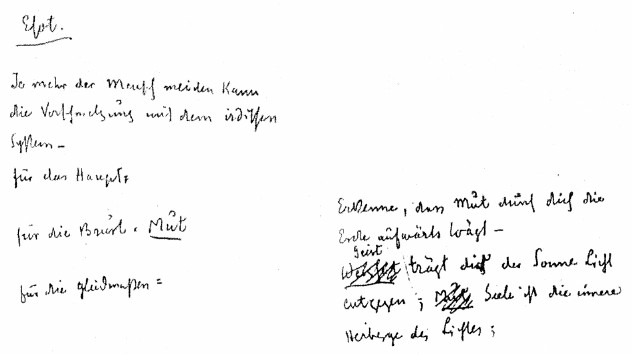 Esot.
Je mehr der Mensch meiden kann
die Verstrickung mit dem irdischen
System –
für das Haupt,
für die Brust = Mut
für die Gliedmaßen =
Erkenne, dass Mut durch dich die
Erde aufwärts trägt –
Geist
trägt dich der Sonne Licht
entgegen; Seele ist die innere
Herberge des Lichtes;